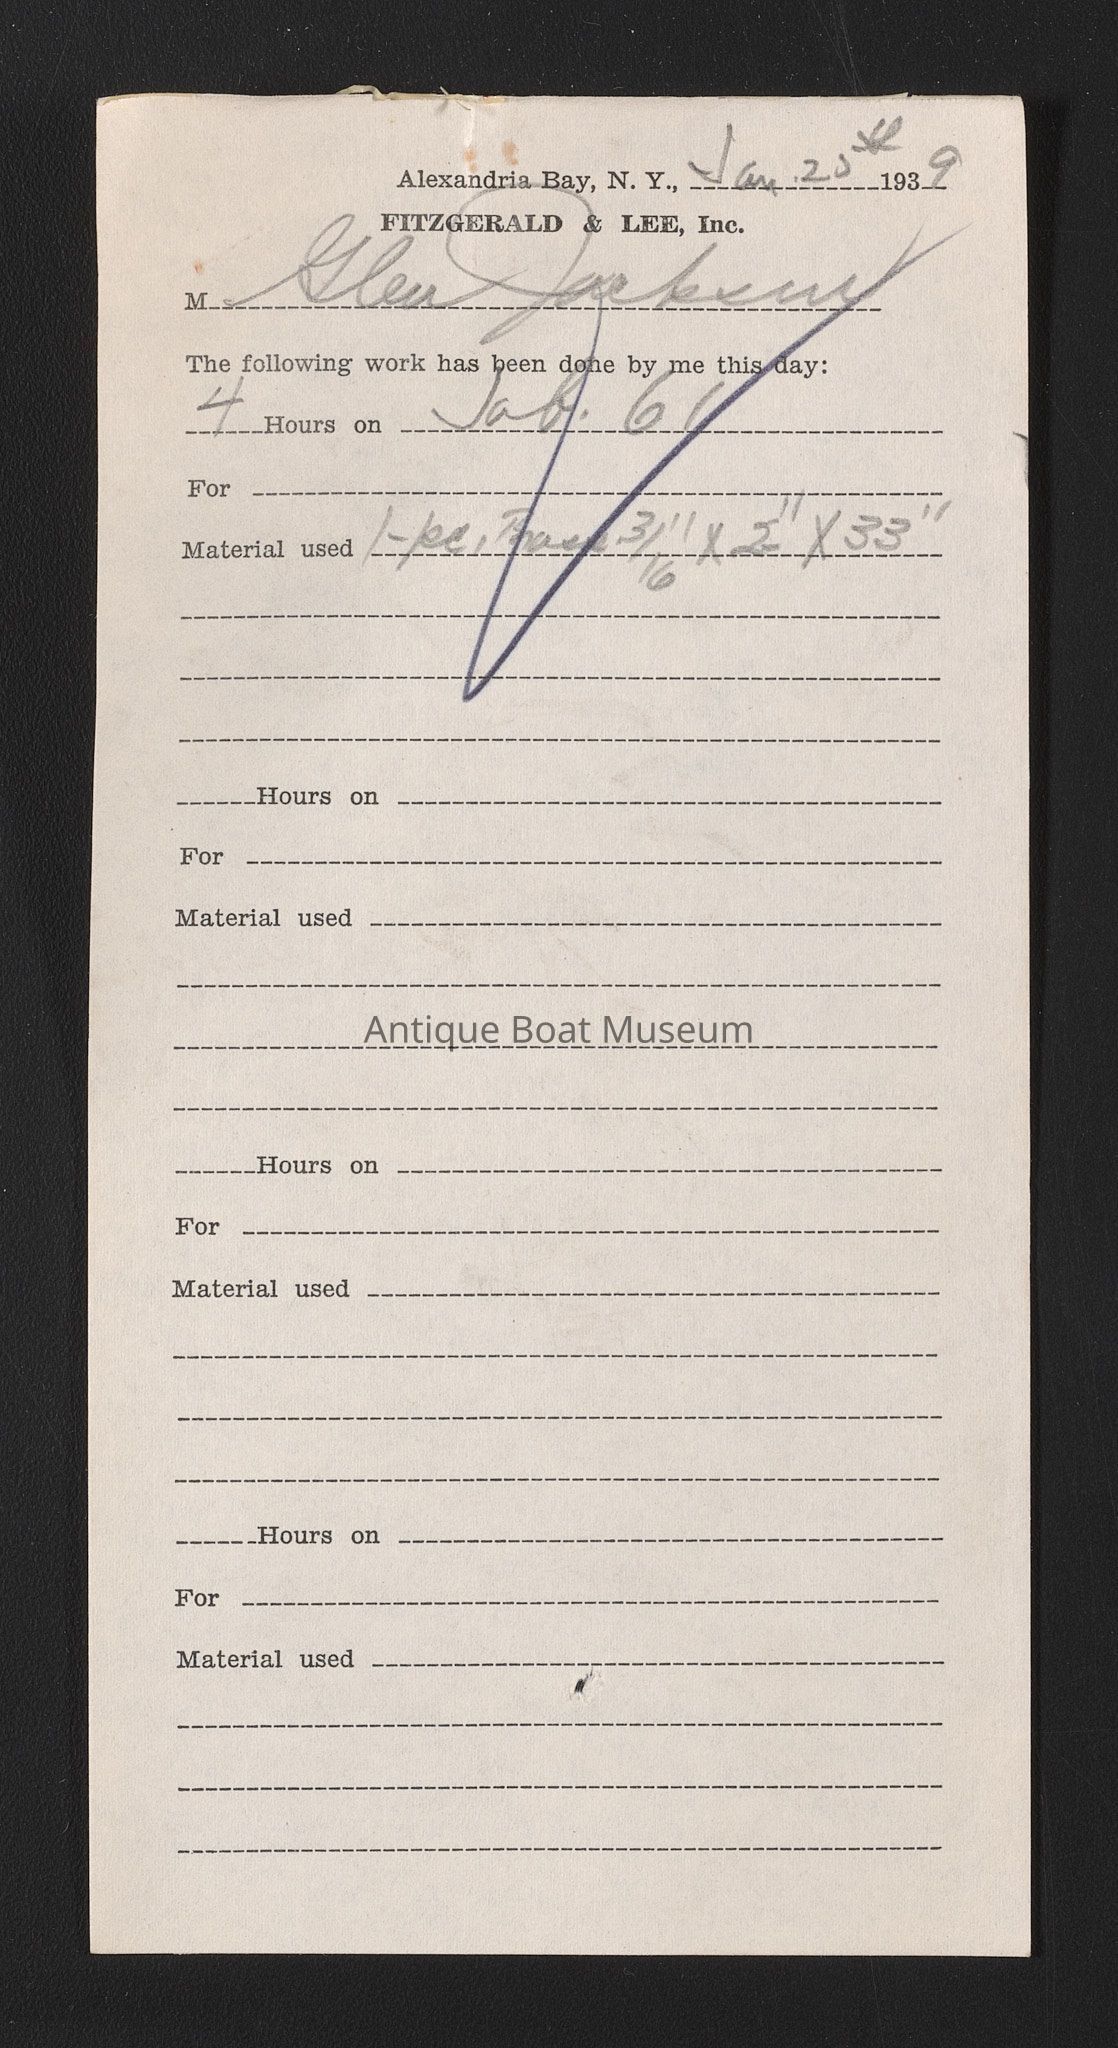 Alexandria Bay, N. Y., Jan. 20th 1939
FITZGERALD & LEE, Inc.
M Glen Jackson
The following work has been done by me this day:
4 Hours on Job. 61
For
Material used 1-pc, Brass 3/16" X 2" X 33"
Hours on
For
Material used
Antique Boat Museum
Hours on
For
Material used
Hours on
For
Material used